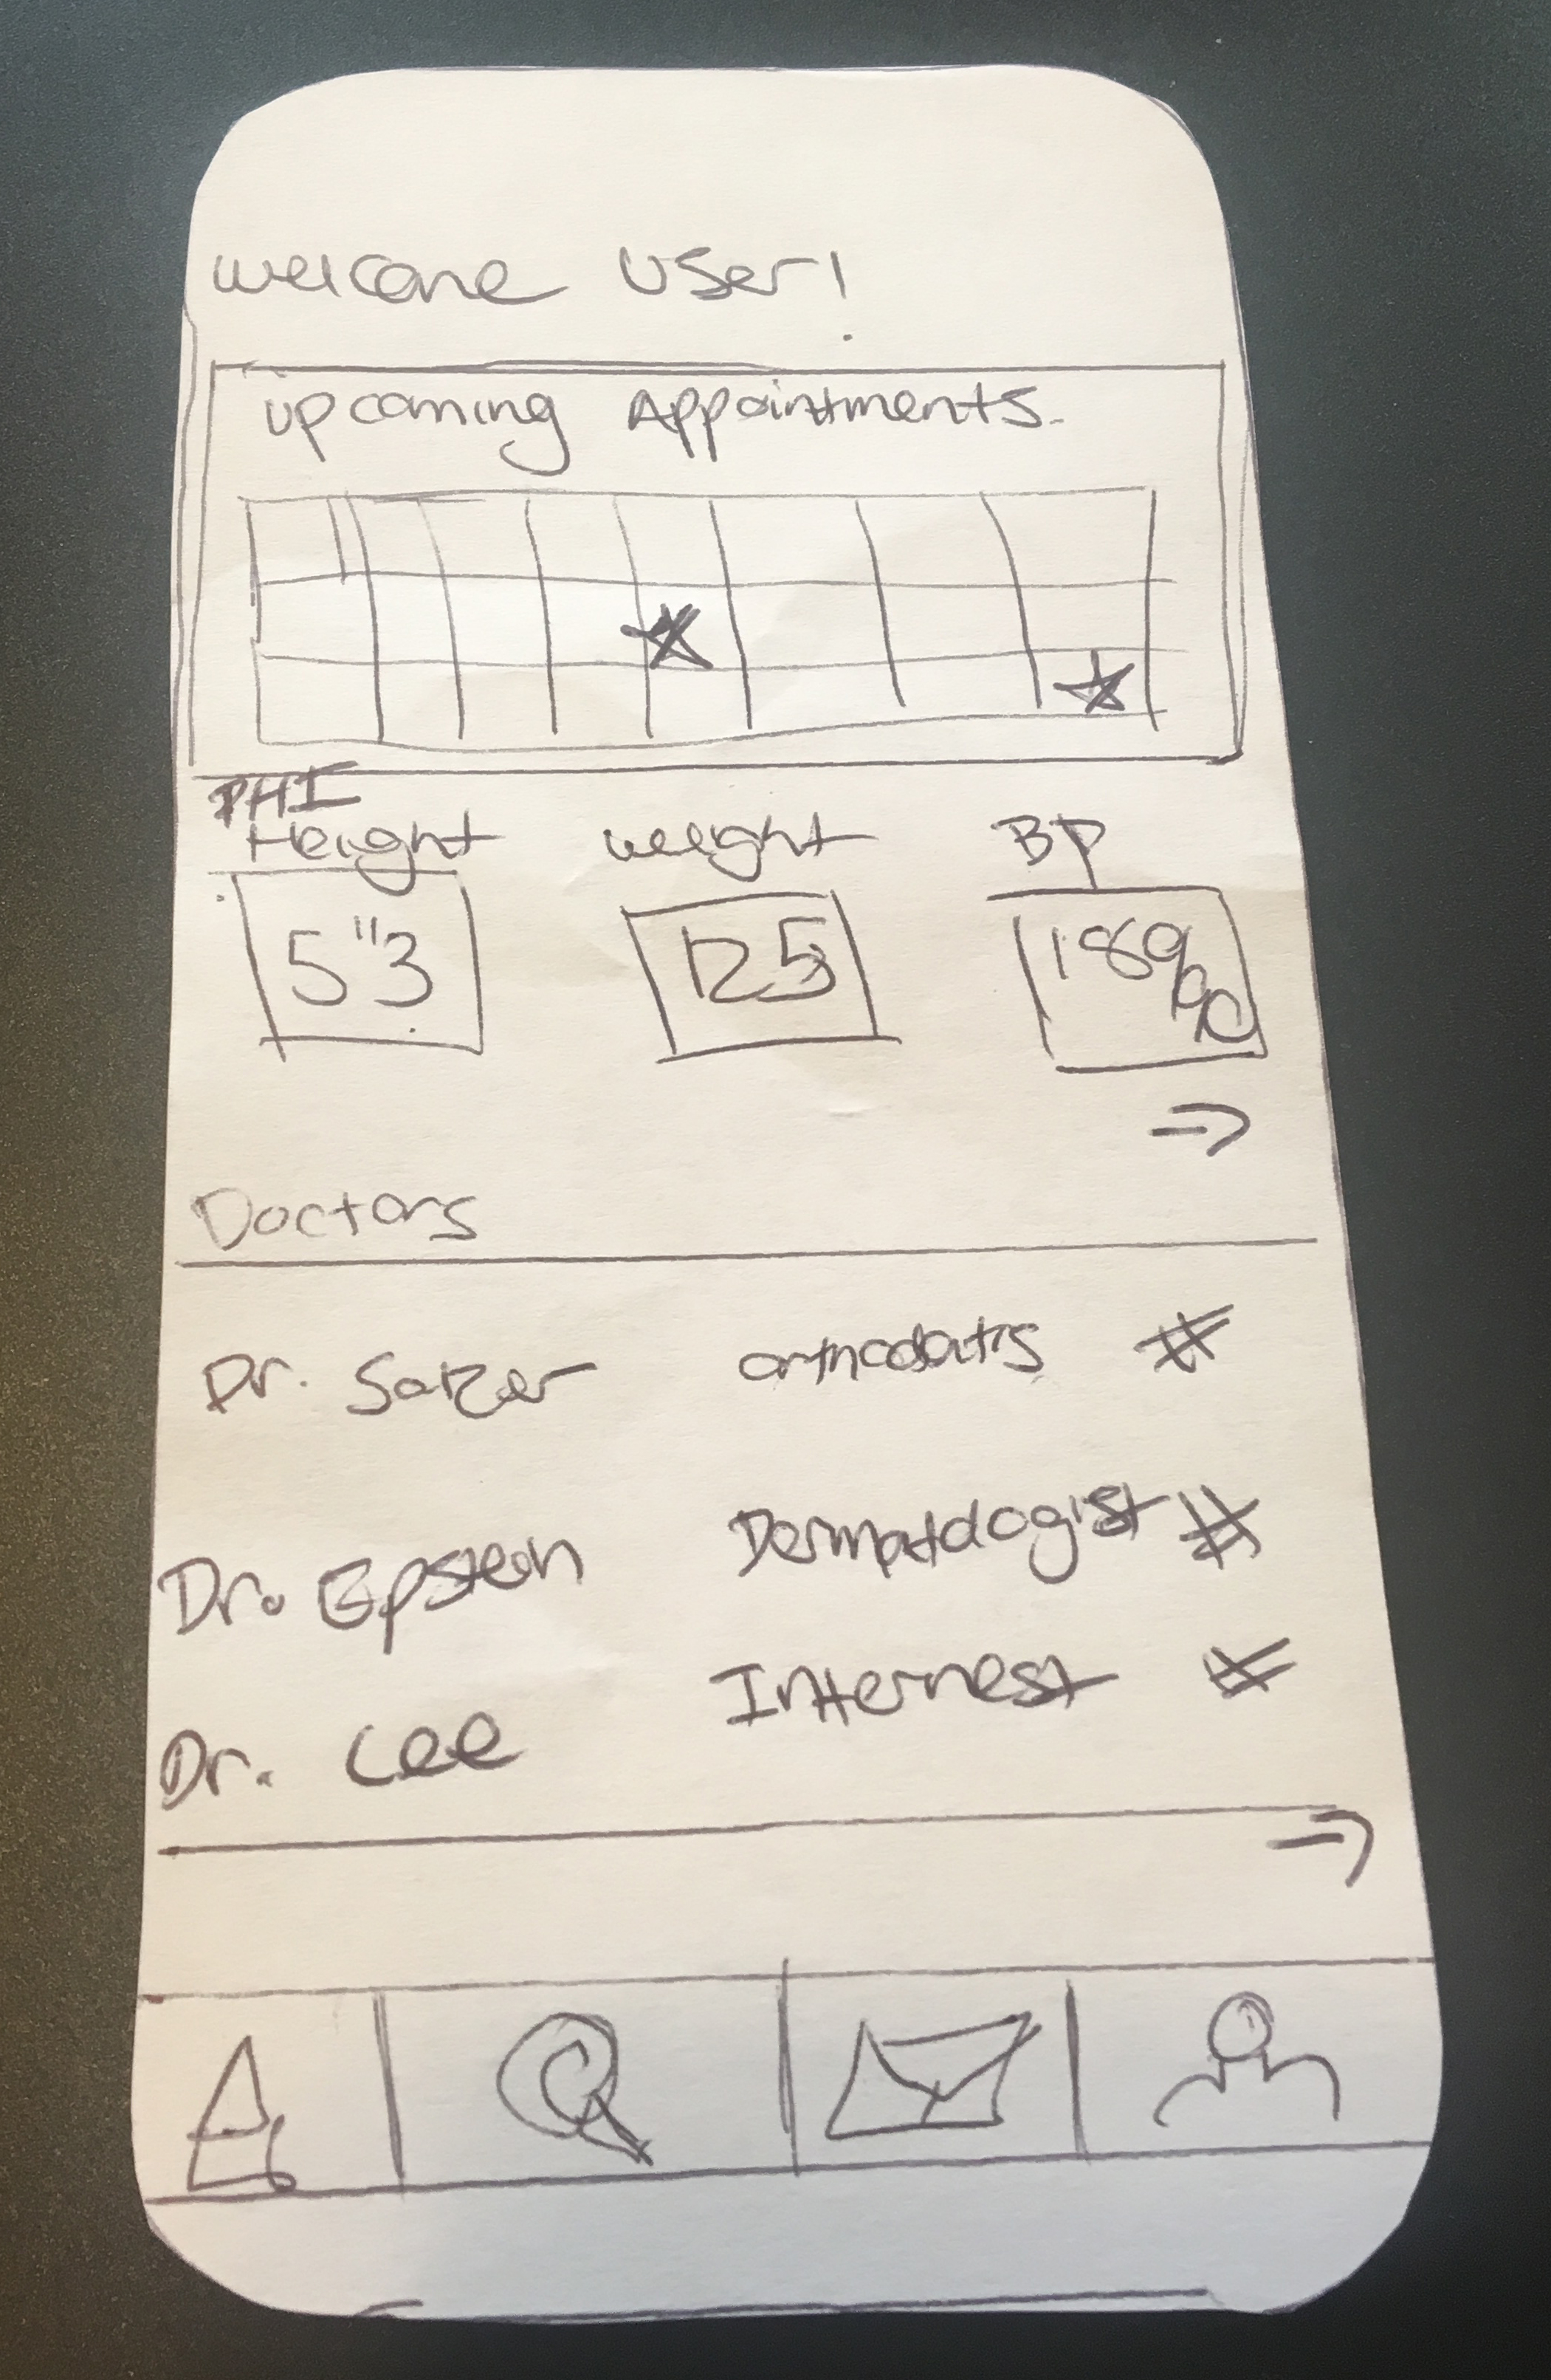 welcome user!
Upcoming Appointments.
PHI
Height weight BP
5"3 125
Doctors
Dr. #
Dr. Epstein Dermatologist #
Dr. Lee Internest #